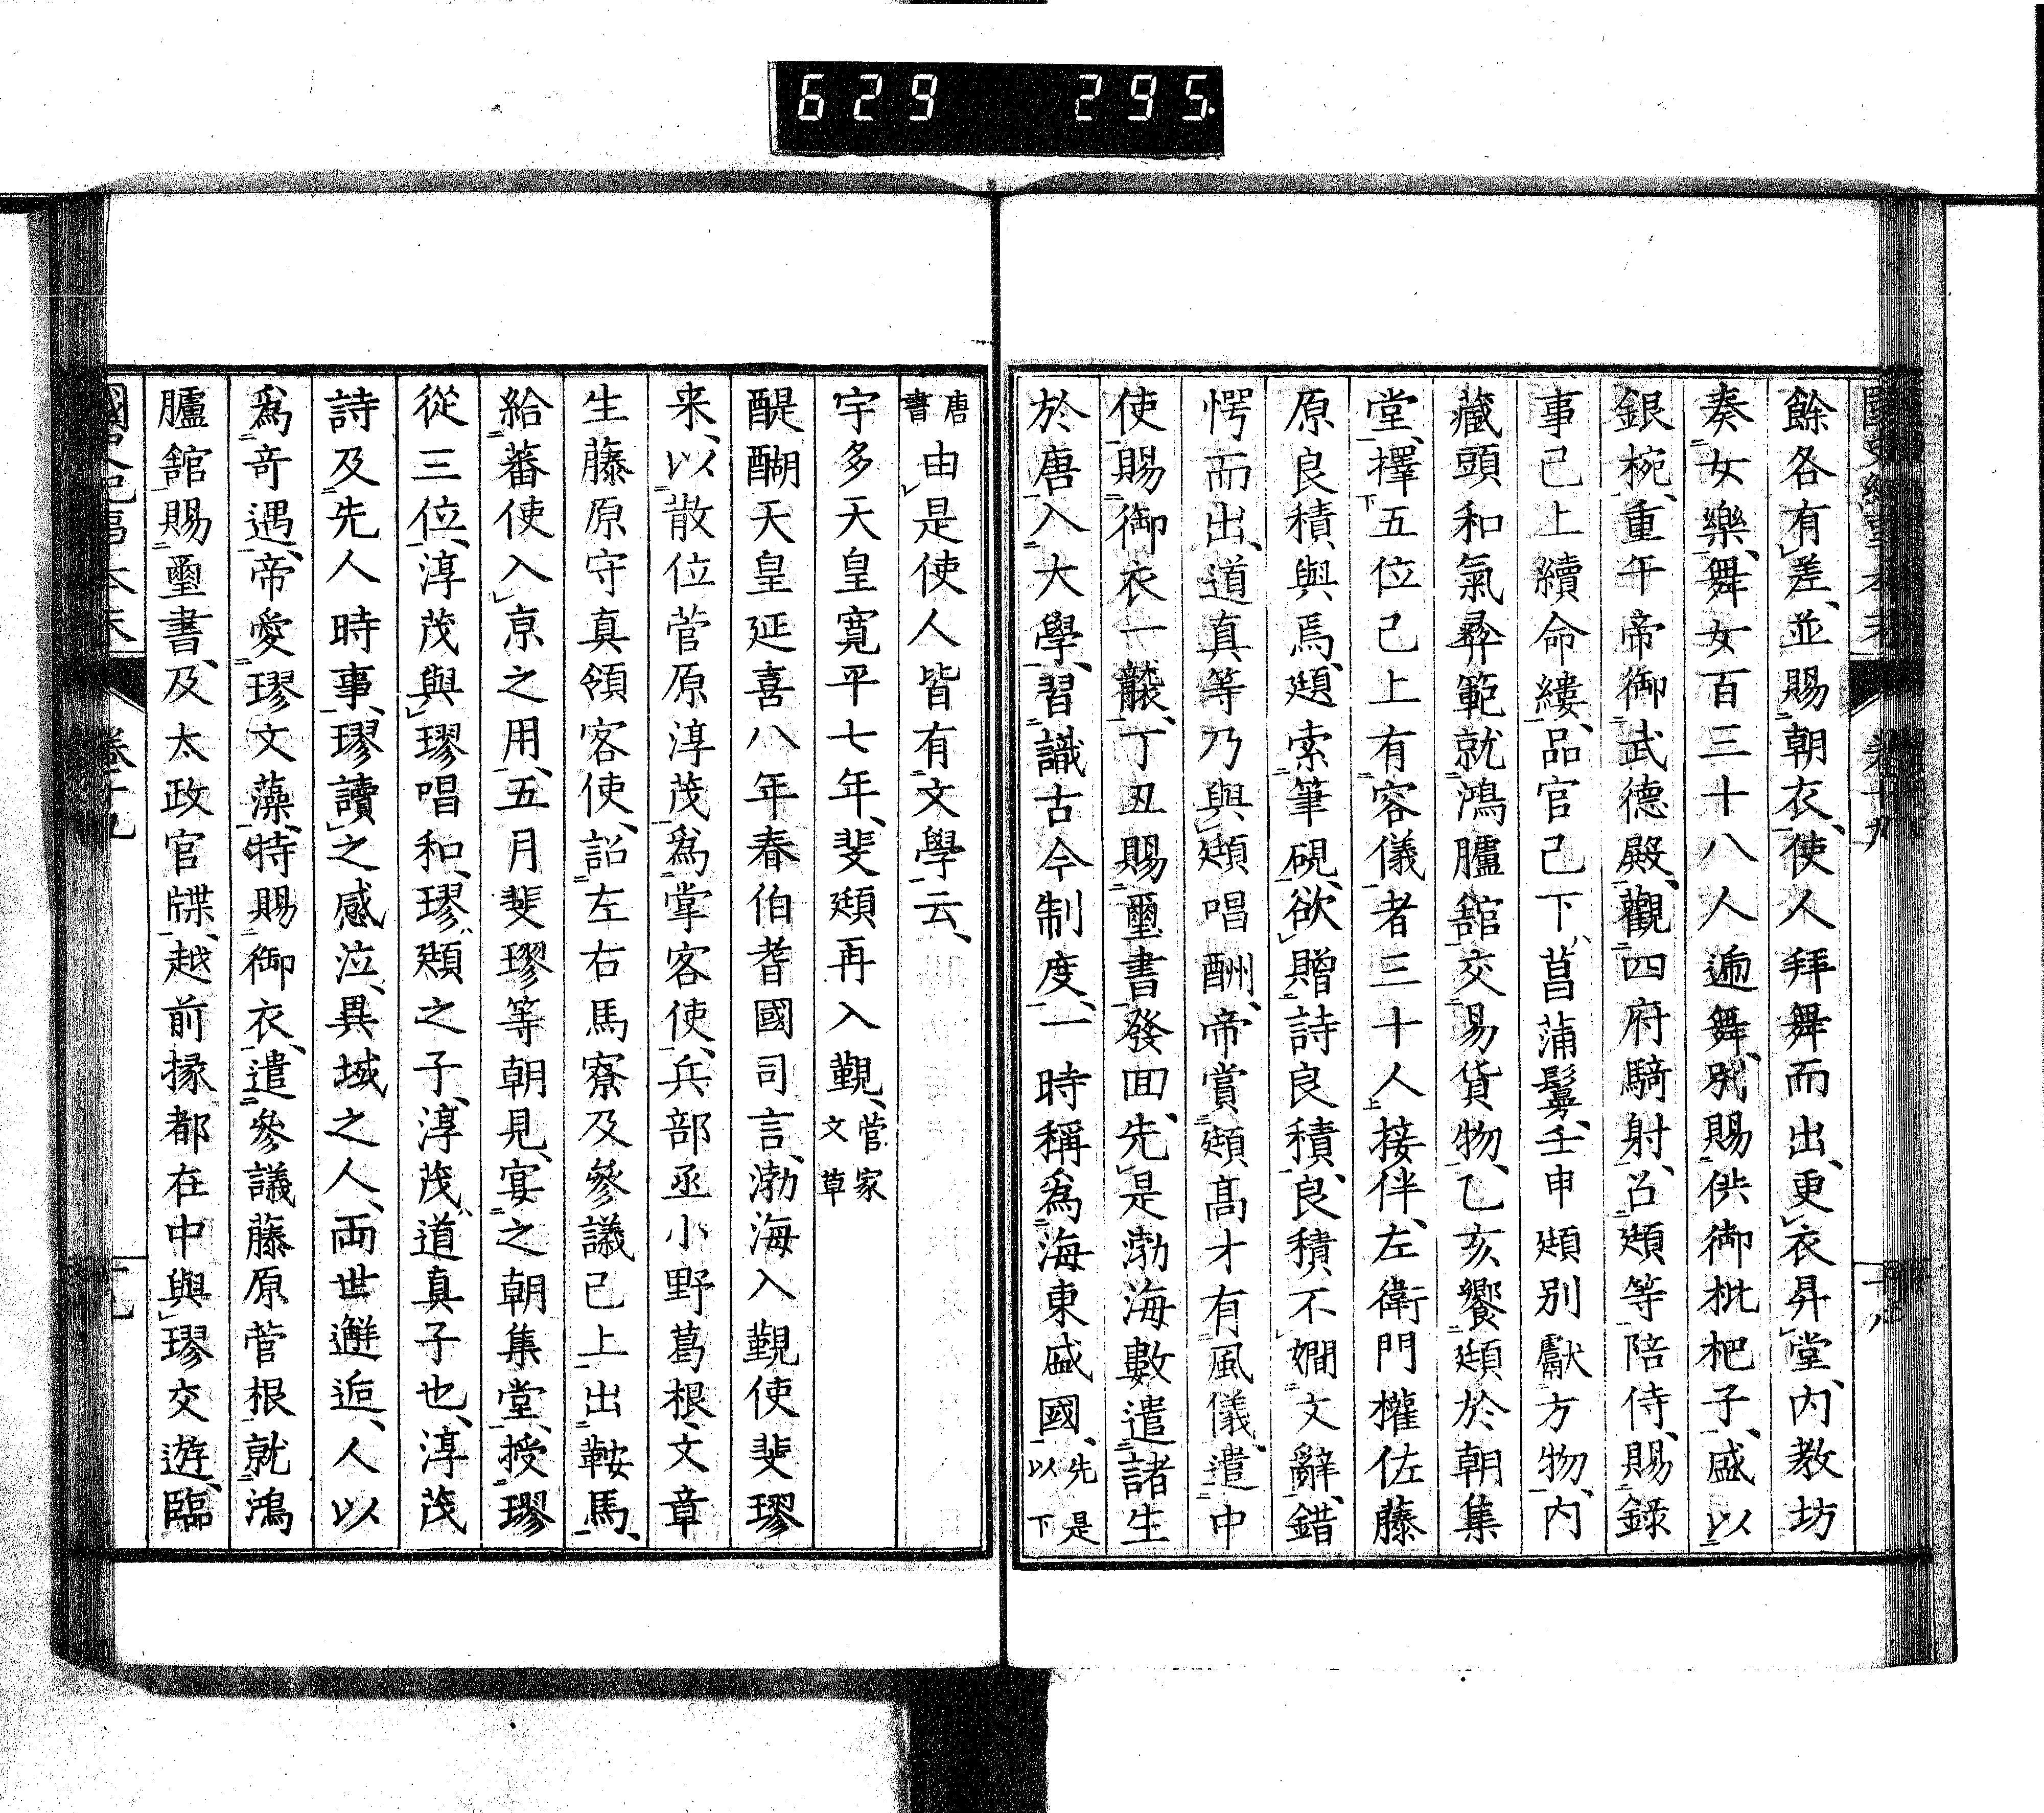 629 295.
餘各有差、並賜朝衣、使人拜舞而出、更衣昇堂、内教坊
奏女樂、舞女百三十八人遍舞、別賜供御枇杷子、盛以
銀椀、重午帝御武德殿、觀四府騎射、召頲等陪侍、賜錄
事已上續命縷、品官已下、菖蒲鬘、壬申頲別獻方物、内
藏頭和氣彜範就鴻臚舘交易貨物、乙亥饗頲於朝集
堂、擇五位已上有容儀者三十人接伴、左衛門權佐藤
原良積與焉、頲索筆硯、欲贈詩良積、良積不嫺文辭、錯
愕而出、道真等乃與頲唱酬、帝賞頲髙才有風儀、遣中
使賜御衣一襲、丁丑賜璽書發囬、先是渤海數遣諸生
於唐入大學、習識古今制度、一時稱爲海東盛國、先是以下
唐書由是使人皆有文學云、
宇多天皇寛平七年、斐頲再入覲、菅家文草
醍醐天皇延喜八年春伯耆國司言、渤海入覲使斐璆
来、以散位菅原淳茂爲掌客使、兵部丞小野葛根、文章
生藤原守真領客使、詔左右馬寮及參議已上出鞍馬、
給蕃使入京之用、五月斐璆等朝見、宴之朝集堂、授璆
從三位、淳茂與璆唱和、璆頲之子、淳茂道真子也、淳茂
詩及先人時事、璆讀之感泣、異域之人、両世邂逅、人以
爲竒遇、帝愛璆文藻、特賜御衣、遣參議藤原菅根就鴻
臚舘賜璽書、及太政官牒、越前掾都在中與璆交遊、臨